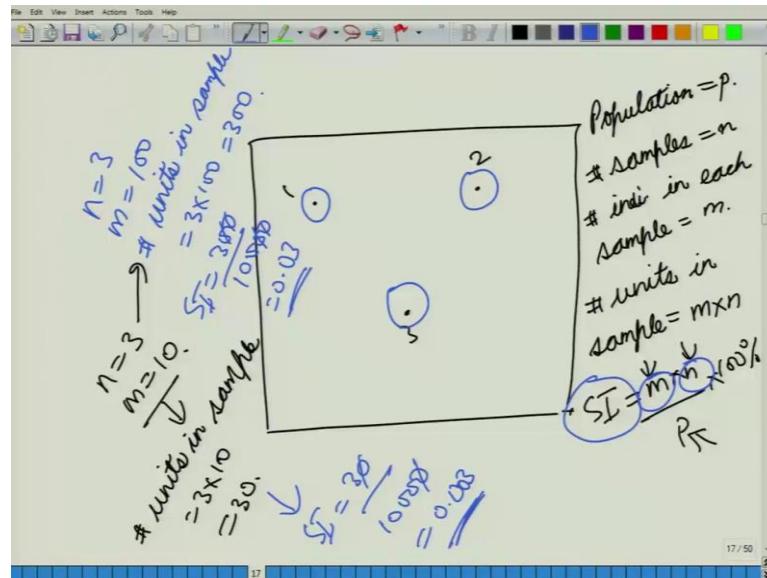 File Edit View Insert Actions Tools Help
B I
n = 3
m = 100
# units in sample
= 3 x 100 = 300.
SI = 300 / 10000
= 0.03
n = 3
m = 10.
# units in sample
= 3 x 10
= 30.
SI = 30 / 10000
= 0.003
1
2
3
Population = p.
# samples = n
# indi in each
sample = m.
# units in
sample = m x n
SI = m x n / P x 100%
17 / 50
17